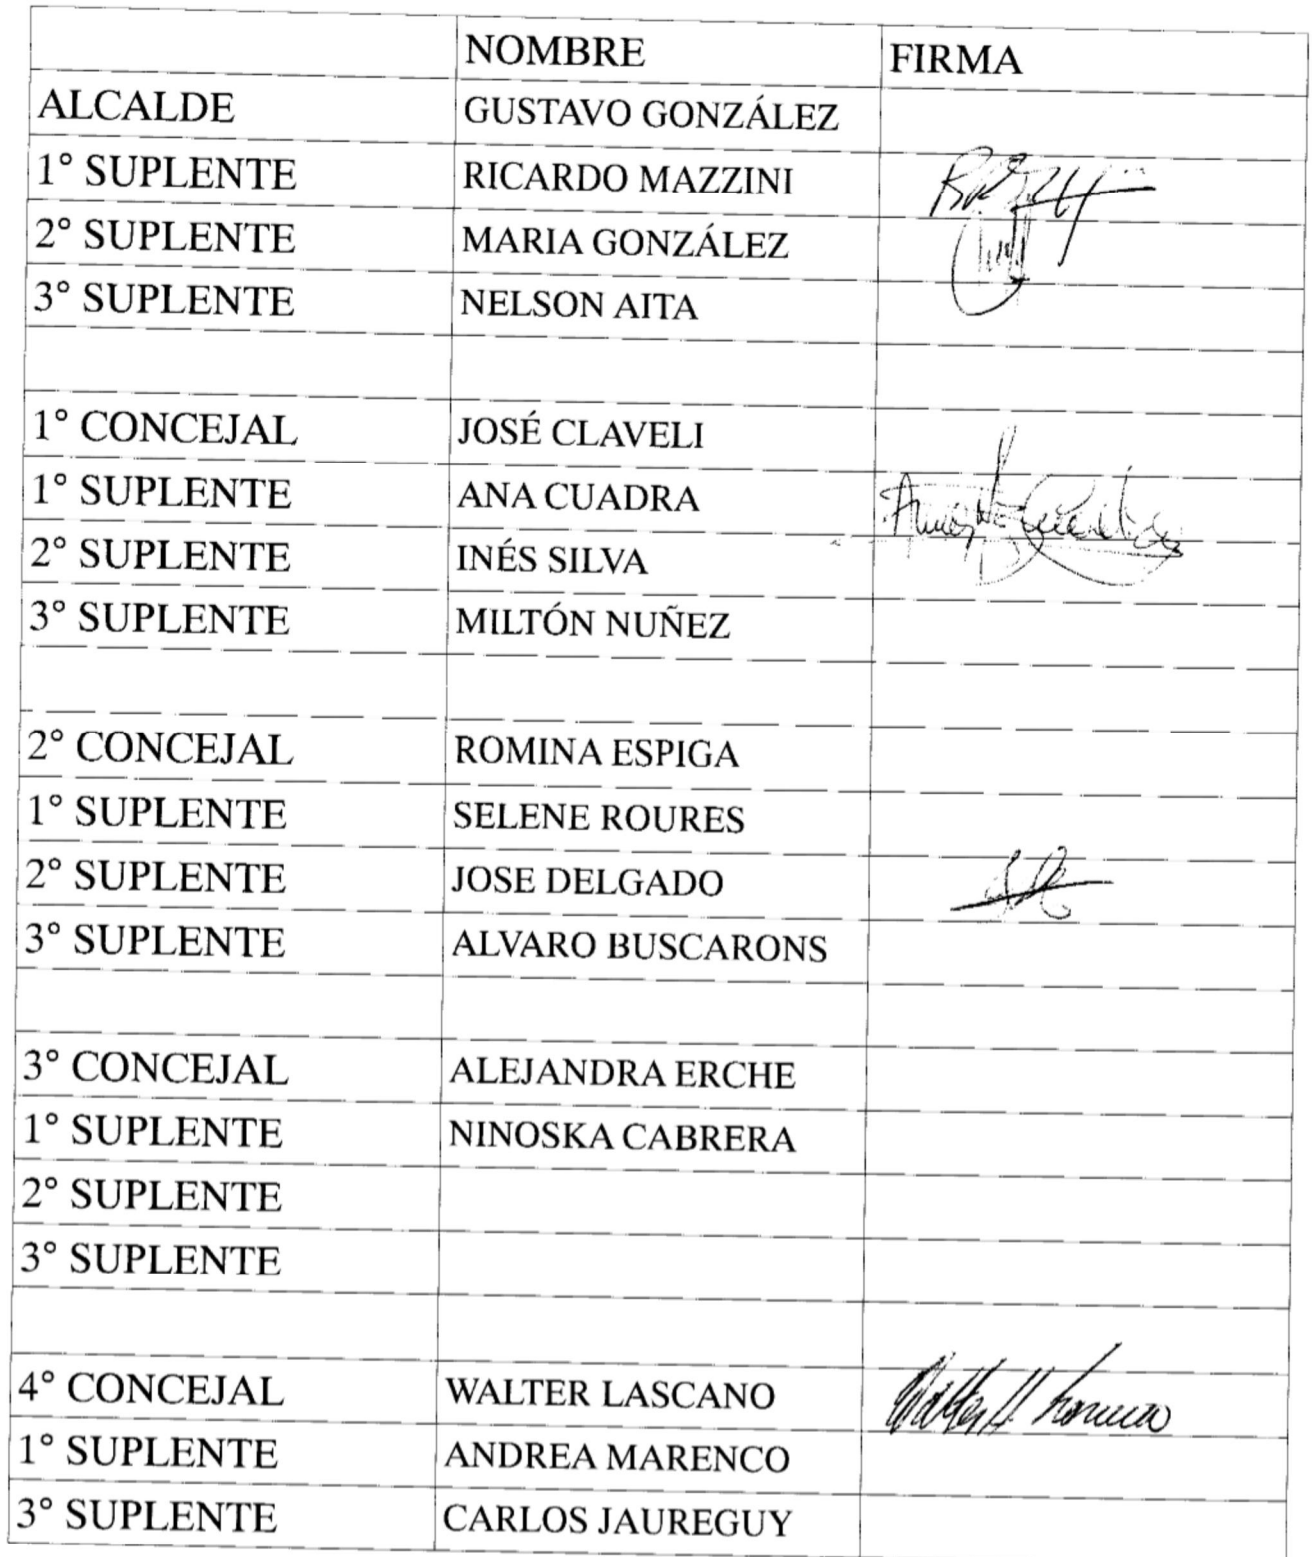 NOMBRE FIRMA
ALCALDE GUSTAVO GONZÁLEZ
1° SUPLENTE RICARDO MAZZINI
2° SUPLENTE MARIA GONZÁLEZ
3° SUPLENTE NELSON AITA
1° CONCEJAL JOSÉ CLAVELI
1° SUPLENTE ANA CUADRA
2° SUPLENTE INÉS SILVA
3° SUPLENTE MILTÓN NUÑEZ
2° CONCEJAL ROMINA ESPIGA
1° SUPLENTE SELENE ROURES
2° SUPLENTE JOSE DELGADO
3° SUPLENTE ALVARO BUSCARONS
3° CONCEJAL ALEJANDRA ERCHE
1° SUPLENTE NINOSKA CABRERA
2° SUPLENTE
3° SUPLENTE
4° CONCEJAL WALTER LASCANO
1° SUPLENTE ANDREA MARENCO
3° SUPLENTE CARLOS JAUREGUY